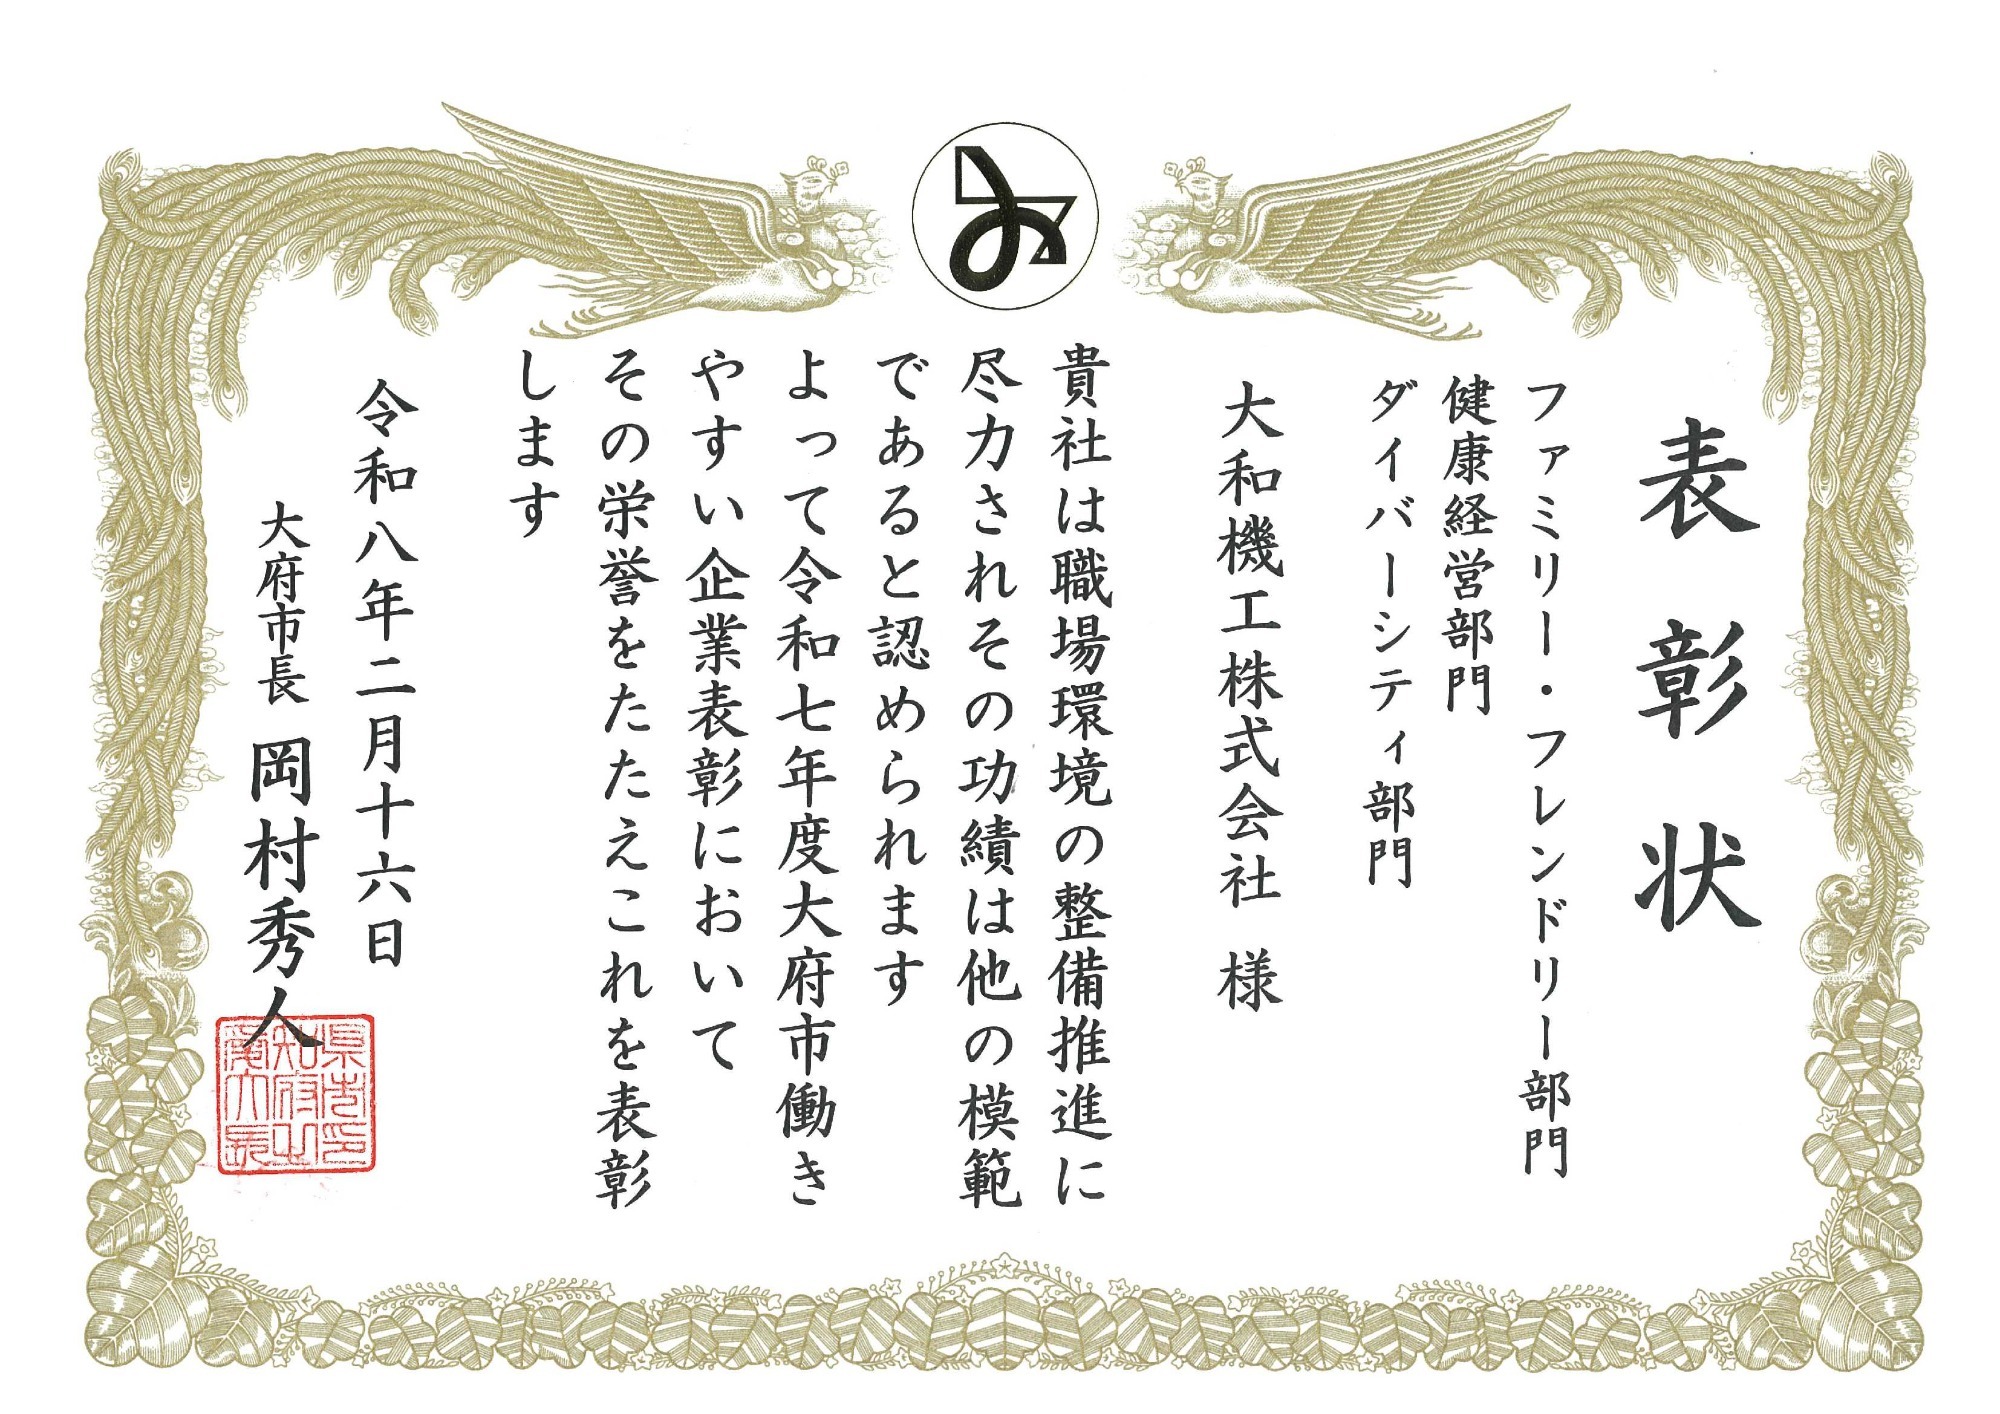 表彰状
ファミリー・フレンドリー部門
健康経営部門
ダイバーシティ部門
大和機工株式会社 様
貴社は職場環境の整備推進に
尽力されその功績は他の模範
であると認められます
よって令和七年度大府市働き
やすい企業表彰において
その栄誉をたたえこれを表彰
します
令和八年二月十六日
大府市長 岡村秀人